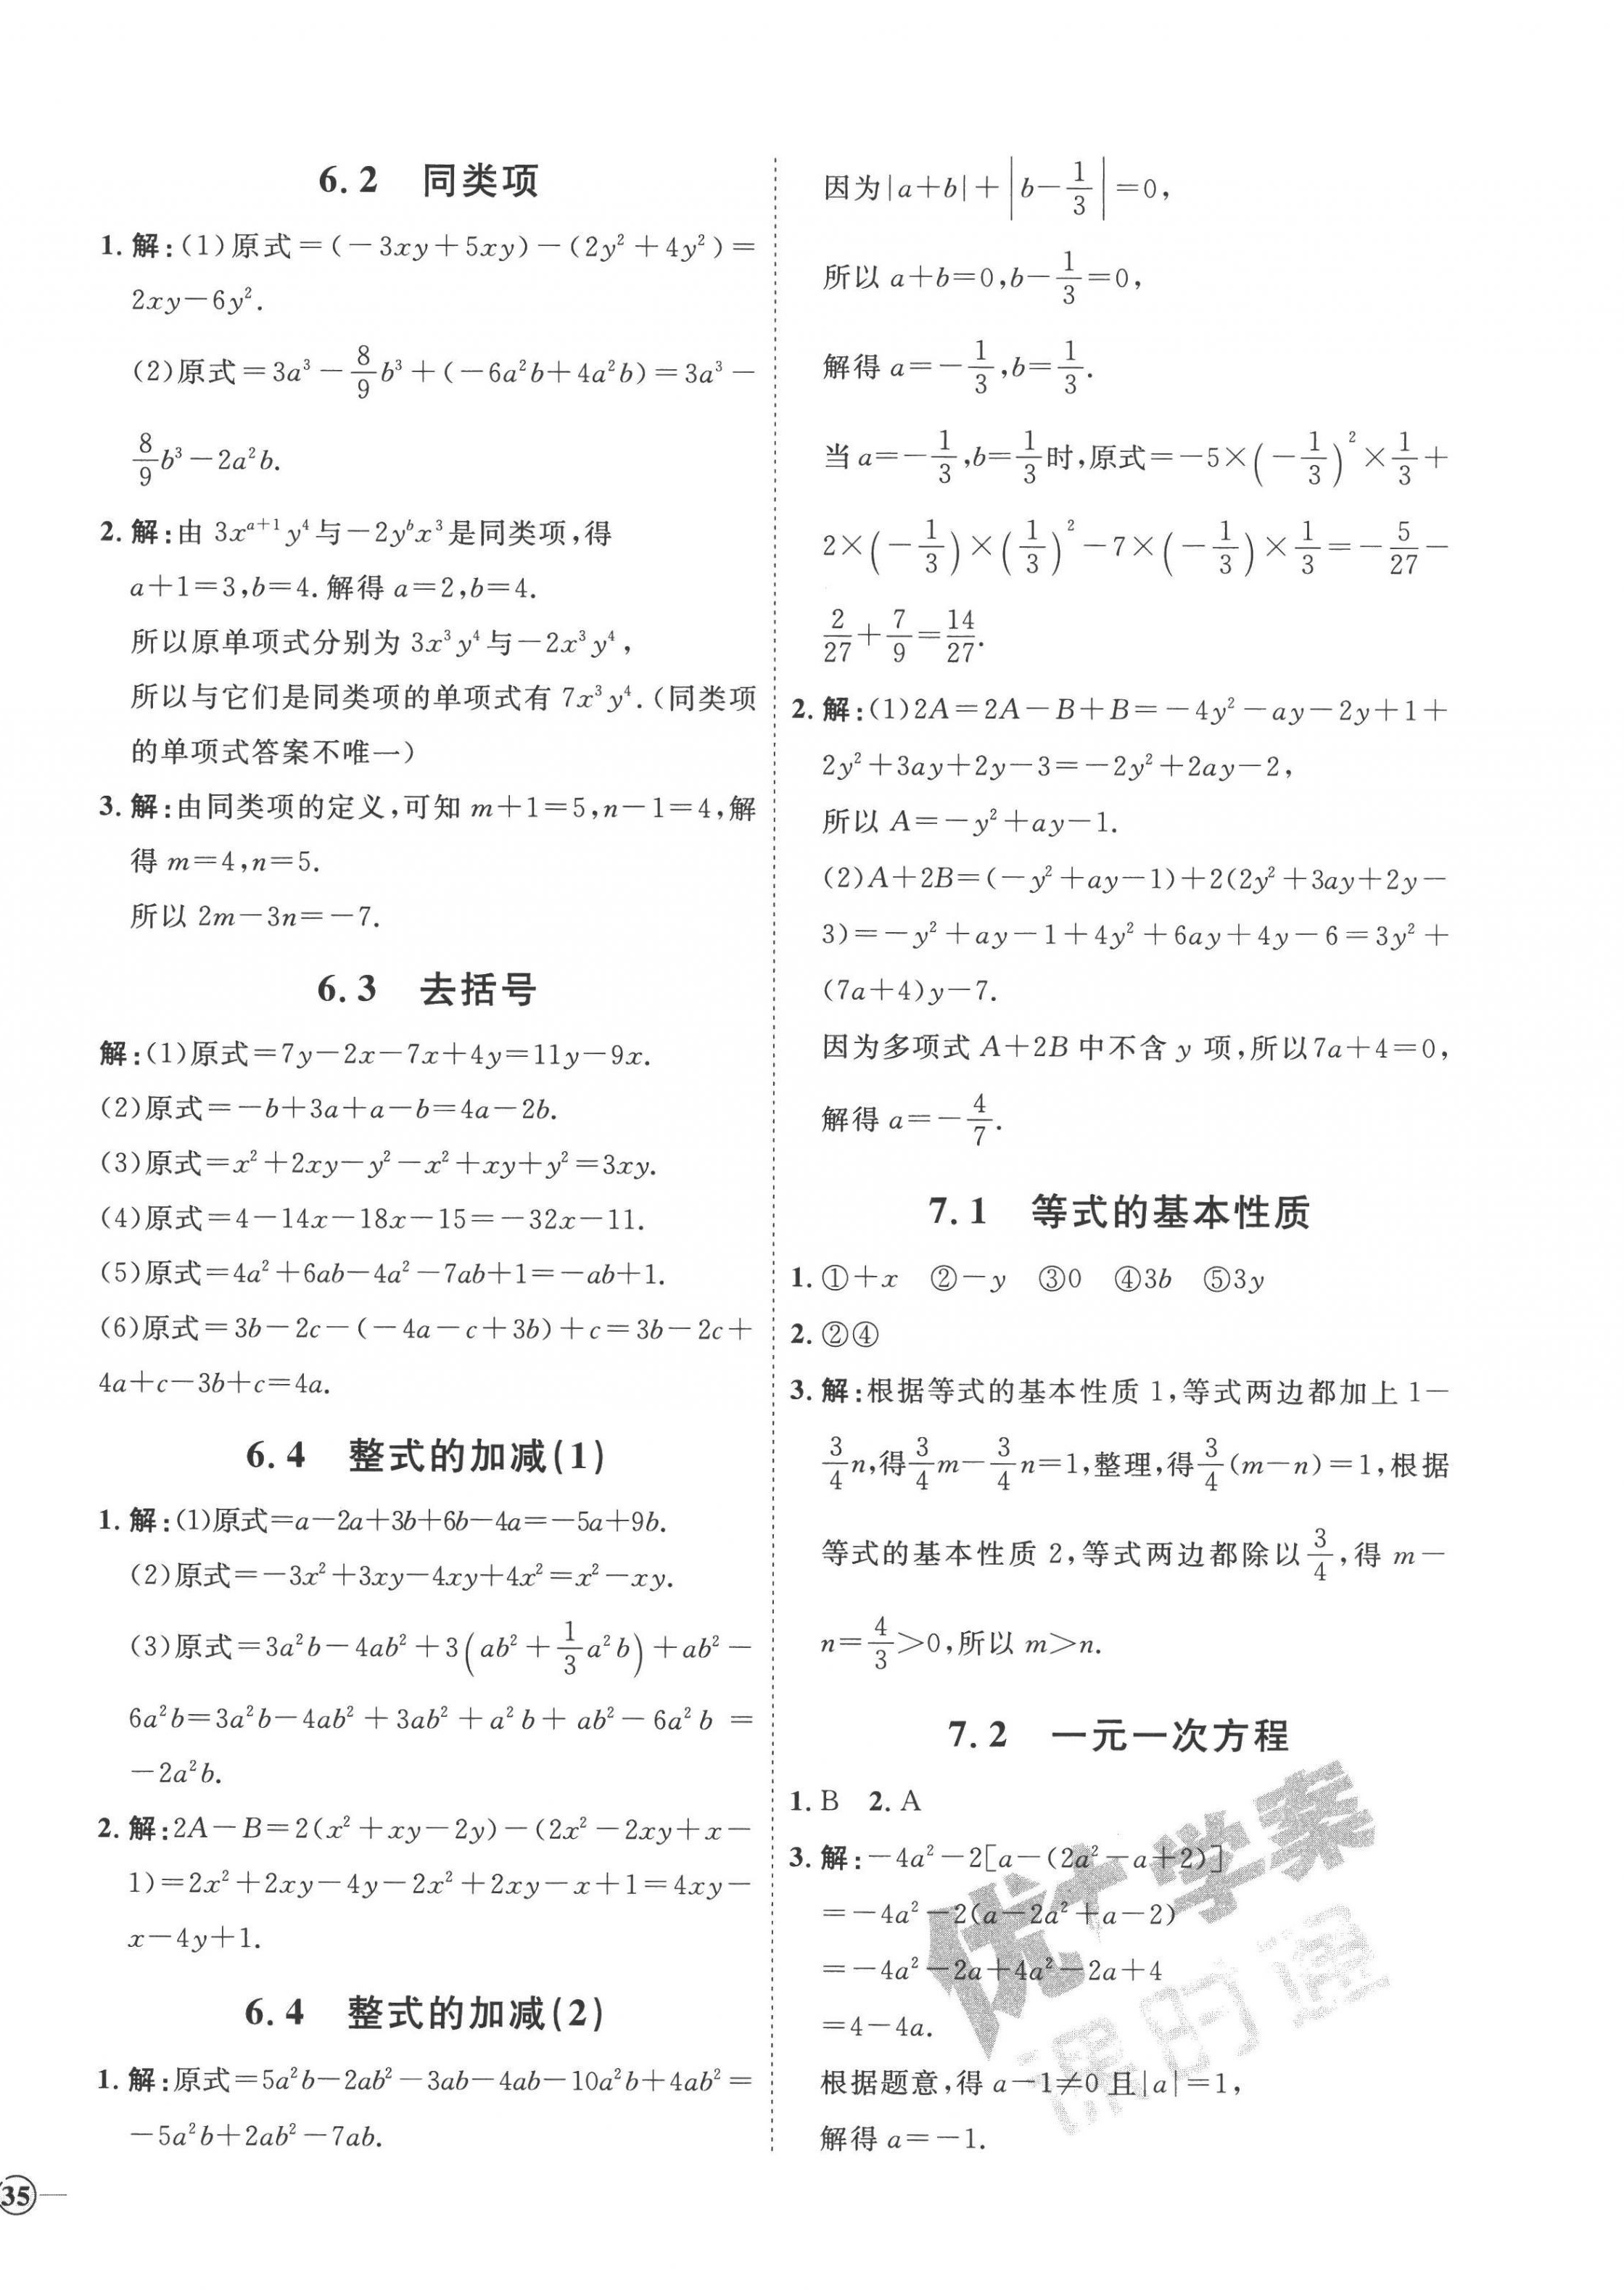 6.2 同类项
1.解:(1)原式=(-3xy+5xy)-(2y²+4y²)=
2xy-6y².
(2)原式=3a³-8/9b³+(-6a²b+4a²b)=3a³-
8/9b³-2a²b.
2.解:由 3xᵃ⁺¹y⁴与-2yᵇx³是同类项,得
a+1=3,b=4.解得 a=2,b=4.
所以原单项式分别为 3x³y⁴与-2x³y⁴,
所以与它们是同类项的单项式有 7x³y⁴.(同类项
的单项式答案不唯一)
3.解:由同类项的定义,可知 m+1=5,n-1=4,解
得 m=4,n=5.
所以 2m-3n=-7.
6.3 去括号
解:(1)原式=7y-2x-7x+4y=11y-9x.
(2)原式=-b+3a+a-b=4a-2b.
(3)原式=x²+2xy-y²-x²+xy+y²=3xy.
(4)原式=4-14x-18x-15=-32x-11.
(5)原式=4a²+6ab-4a²-7ab+1=-ab+1.
(6)原式=3b-2c-(-4a-c+3b)+c=3b-2c+
4a+c-3b+c=4a.
6.4 整式的加减(1)
1.解:(1)原式=a-2a+3b+6b-4a=-5a+9b.
(2)原式=-3x²+3xy-4xy+4x²=x²-xy.
(3)原式=3a²b-4ab²+3(ab²+1/3a²b)+ab²-
6a²b=3a²b-4ab²+3ab²+a²b+ab²-6a²b=
-2a²b.
2.解:2A-B=2(x²+xy-2y)-(2x²-2xy+x-
1)=2x²+2xy-4y-2x²+2xy-x+1=4xy-
x-4y+1.
6.4 整式的加减(2)
1.解:原式=5a²b-2ab²-3ab-4ab-10a²b+4ab²=
-5a²b+2ab²-7ab.
35
因为|a+b|+|b-1/3|=0,
所以 a+b=0,b-1/3=0,
解得 a=-1/3,b=1/3.
当 a=-1/3,b=1/3时,原式=-5×(-1/3)²×1/3+
2×(-1/3)×(1/3)²-7×(-1/3)×1/3=-5/27-
2/27+7/9=14/27.
2.解:(1)2A=2A-B+B=-4y²-ay-2y+1+
2y²+3ay+2y-3=-2y²+2ay-2,
所以 A=-y²+ay-1.
(2)A+2B=(-y²+ay-1)+2(2y²+3ay+2y-
3)=-y²+ay-1+4y²+6ay+4y-6=3y²+
(7a+4)y-7.
因为多项式 A+2B 中不含 y 项,所以7a+4=0,
解得 a=-4/7.
7.1 等式的基本性质
1.①+x ②-y ③0 ④3b ⑤3y
2.②④
3.解:根据等式的基本性质 1,等式两边都加上 1-
3/4n,得3/4m-3/4n=1,整理,得3/4(m-n)=1,根据
等式的基本性质 2,等式两边都除以3/4,得 m-
n=4/3>0,所以 m>n.
7.2 一元一次方程
1.B 2.A
3.解:-4a²-2[a-(2a²-a+2)]
=-4a²-2(a-2a²+a-2)
=-4a²-2a+4a²-2a+4
=4-4a.
根据题意,得 a-1≠0 且|a|=1,
解得 a=-1.
优+学案
课时通